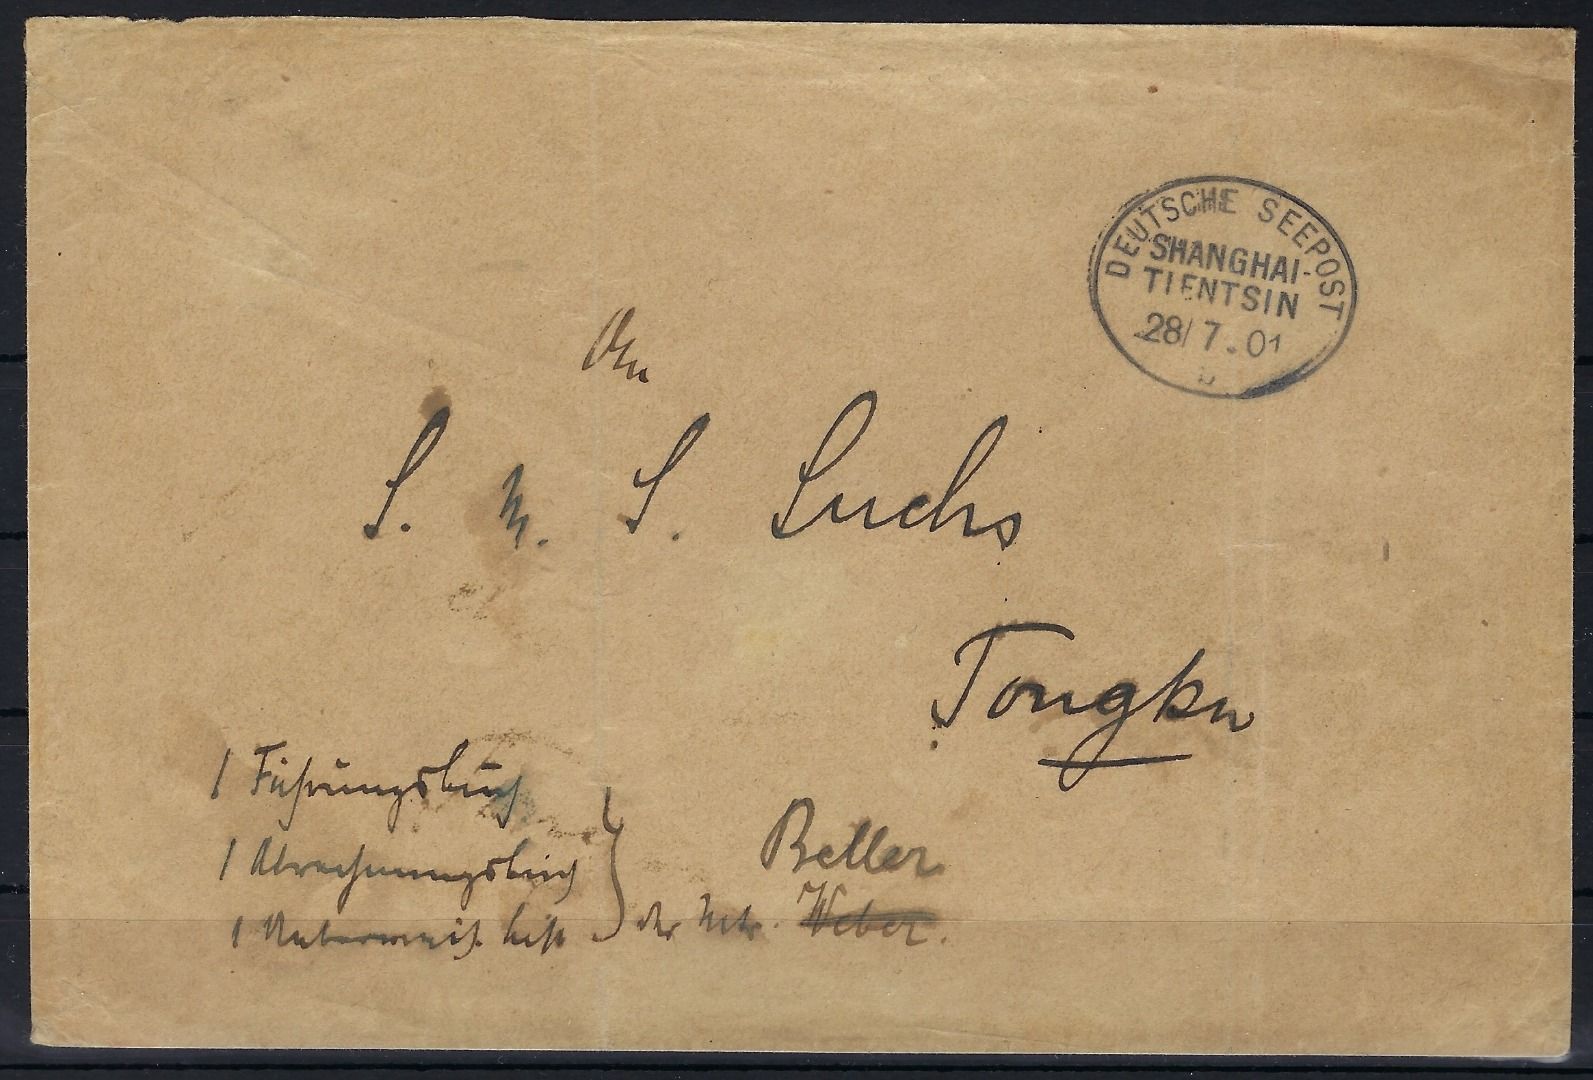 DEUTSCHE SEEPOST
SHANGHAI-
TIENTSIN
28/7.01
b
An
S. M. S. Luchs
Tongku
1 Führungsbuch
1 Abrechnungsbuch
Beller
1 heft der Mtr. Weber.